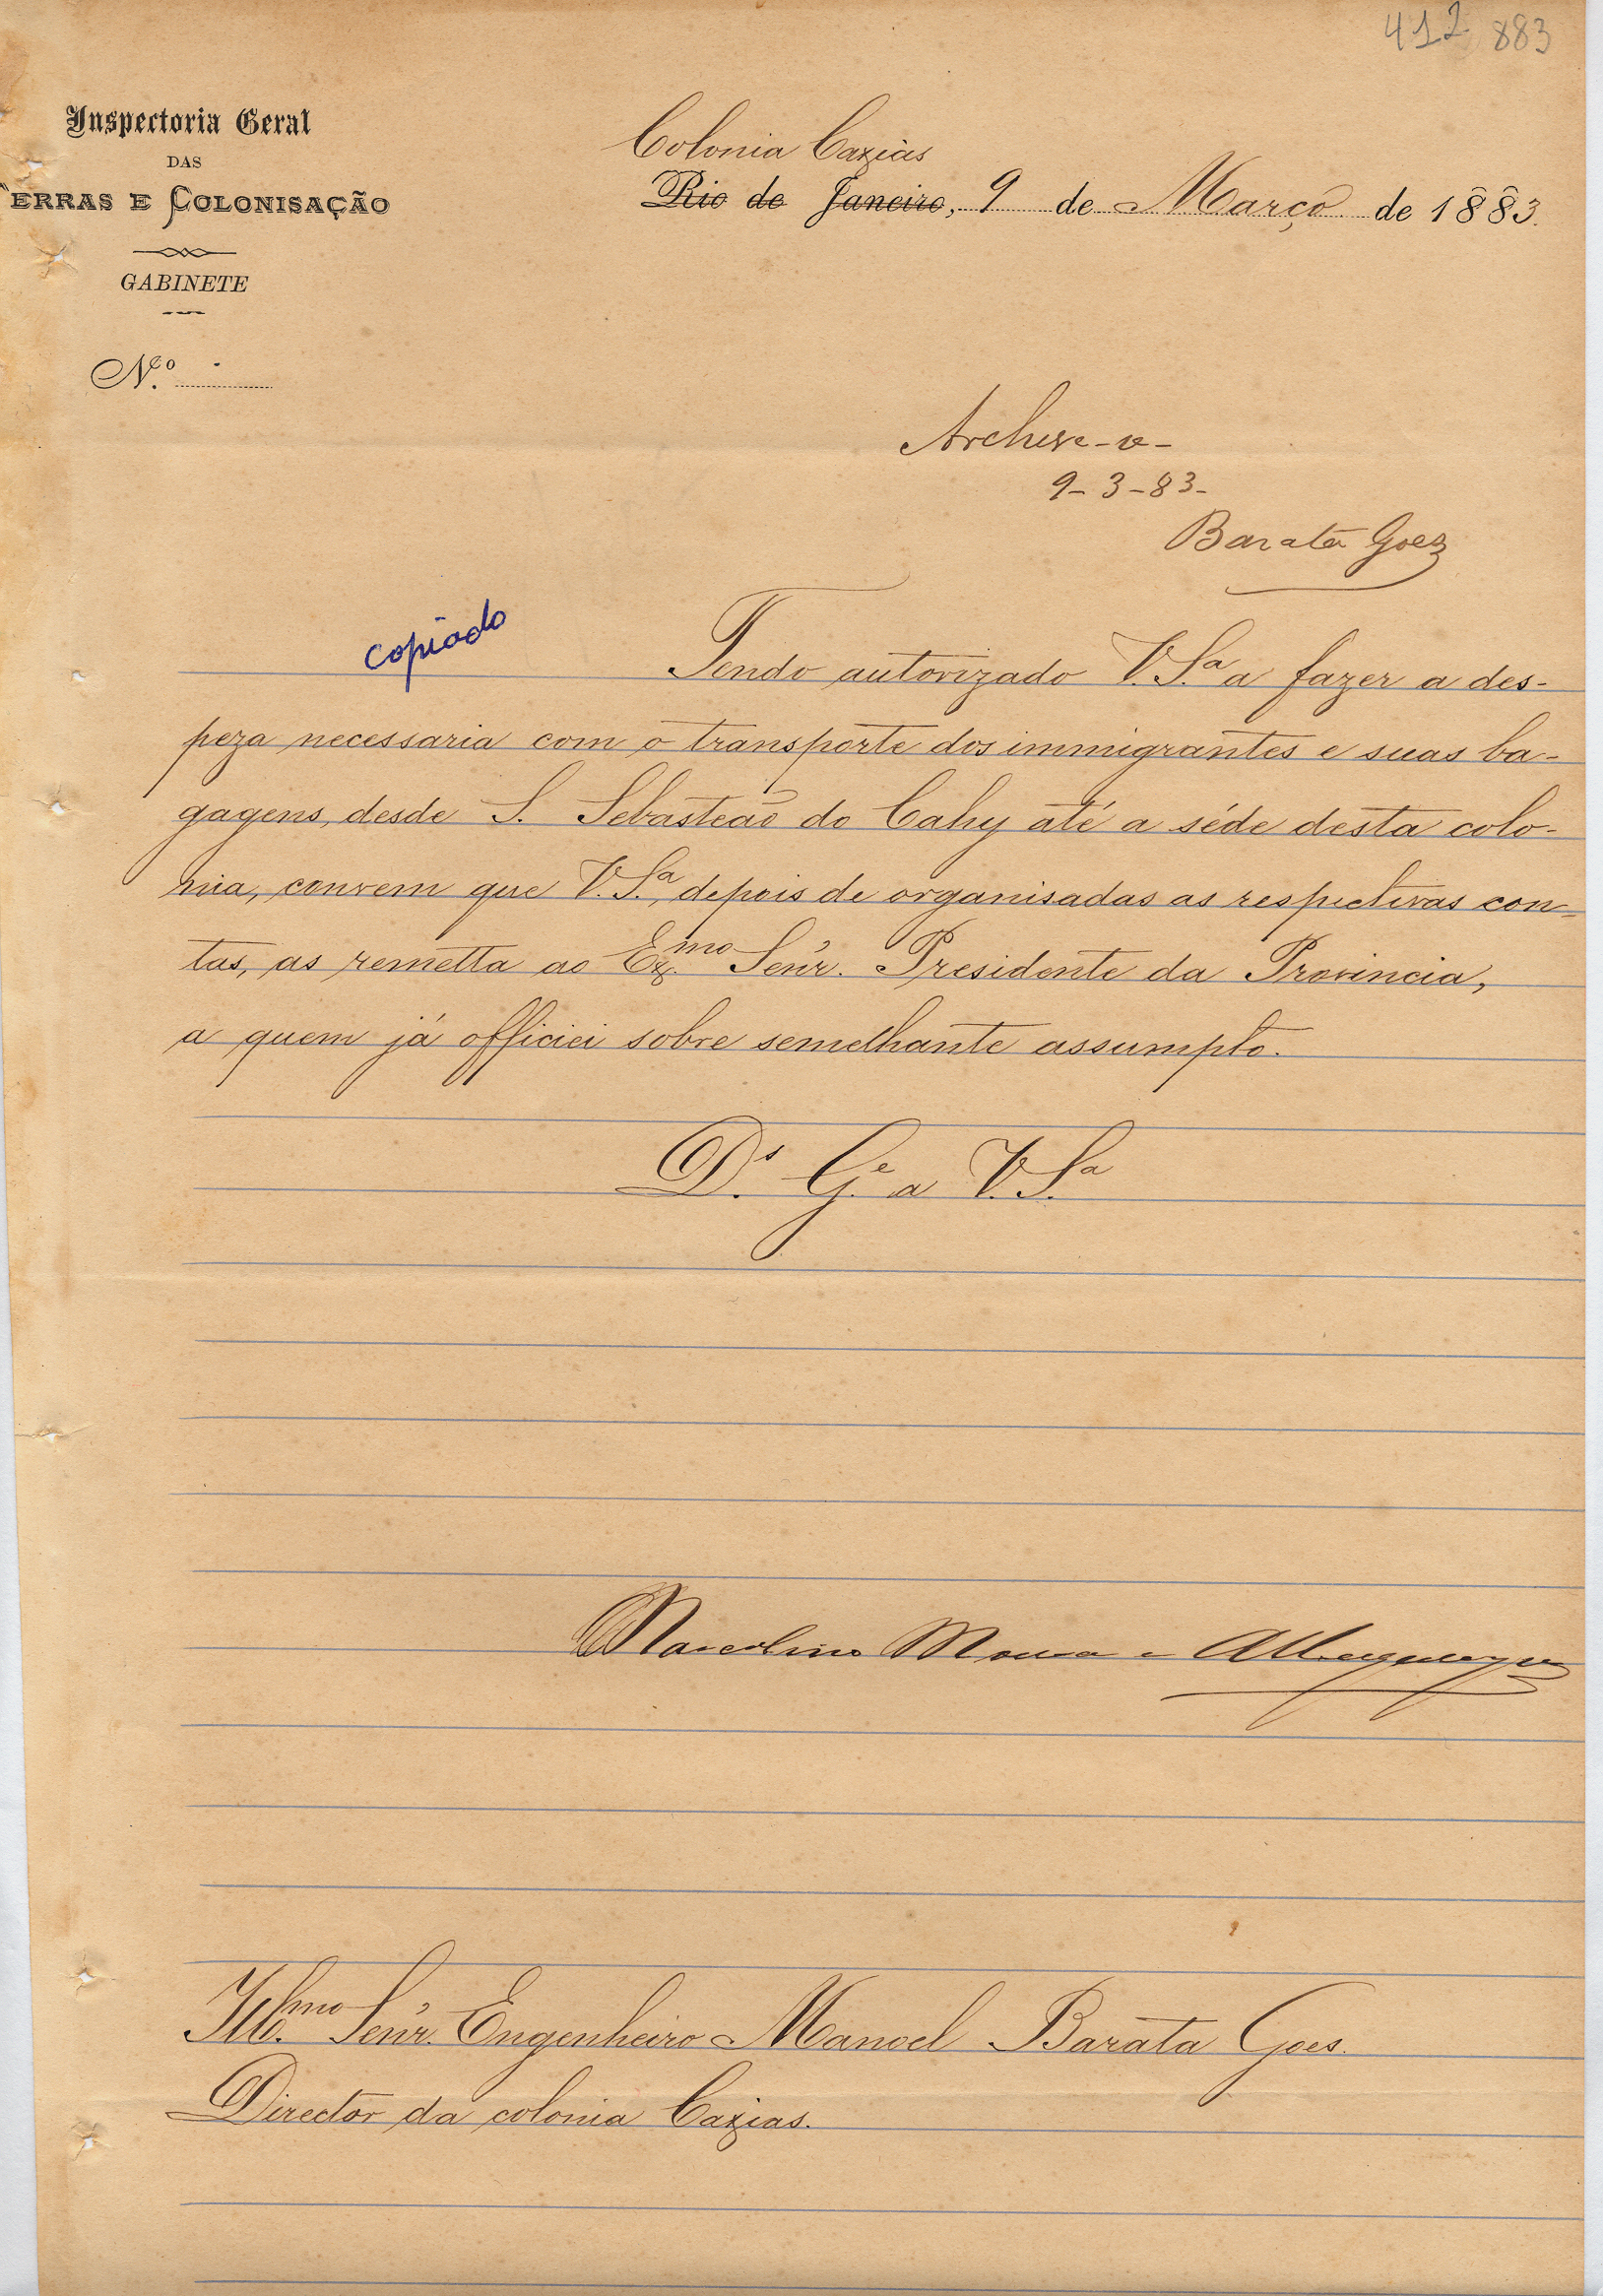 412 883
Inspectoria Geral
DAS
TERRAS E COLONISAÇÃO
GABINETE
N.º
Colonia Caxias
Rio de Janeiro, 9 de Março de 1883.
Archive-se-
9-3-83-
Barata Goes
copiado
Tendo autorizado V. S.ª a fazer a des-
peza necessaria com o transporte dos immigrantes e suas ba-
gagens, desde S. Sebasteão do Cahy até a séde desta colo-
nia, convem que V. S.ª, depois de organisadas as respectivas con-
tas, as remetta ao Ex.mo Senr. Presidente da Provincia,
a quem já officiei sobre semelhante assumpto.
D.s G.e a V. S.ª
Marcolino Moura e Albuquerque
Ill.mo Senr. Engenheiro Manoel Barata Goes.
Director da colonia Caxias.